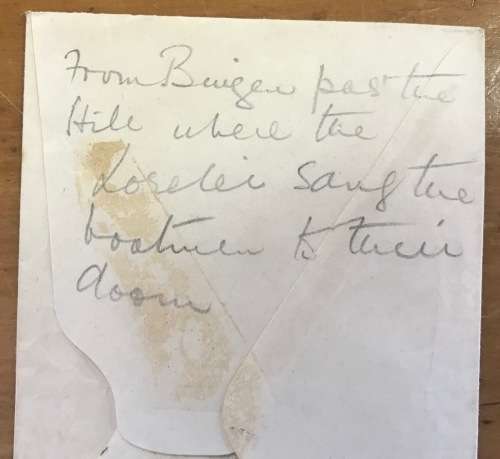 From Bingen past the
Hill where the
Lorelei sang the
boatmen to their
doom